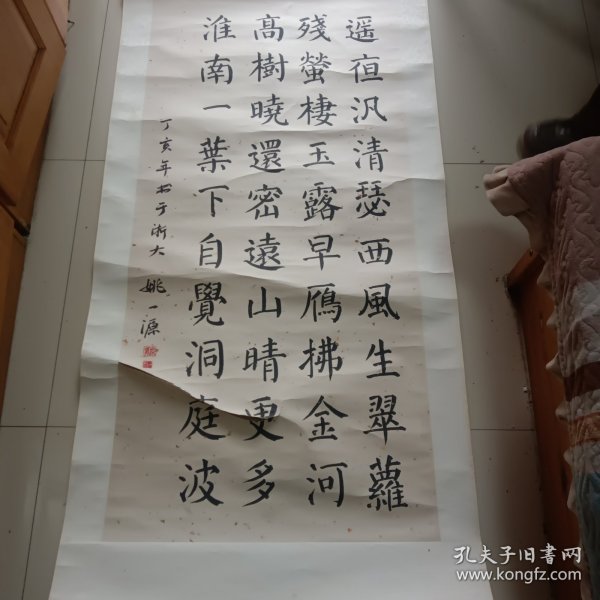 遥夜汎清瑟西風生翠蘿
殘螢棲玉露早鴈拂金河
高樹曉還密遠山晴更多
淮南一葉下自覺洞庭波
丁亥年初于浙大 姚一源
孔夫子旧书网
www.kongfz.com